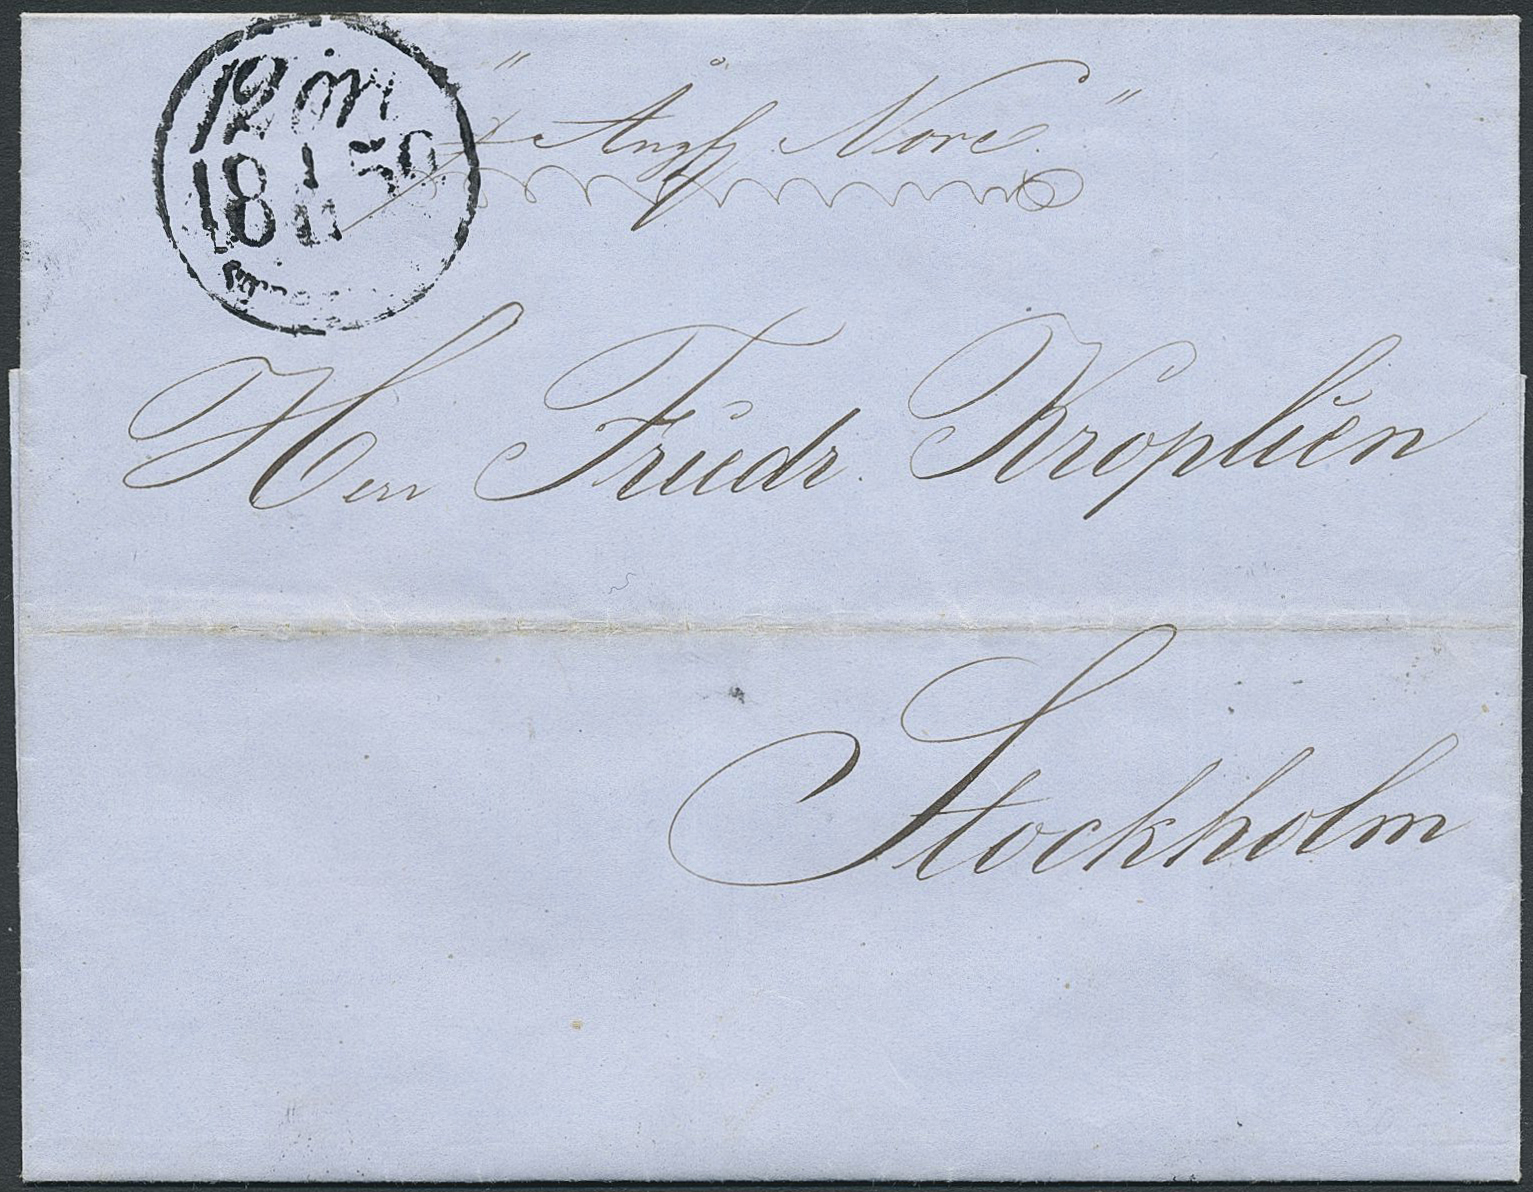 12 ör
18 1/11 56
" p Ångfg. Nore."
Herr Friedr. Kropliên
Stockholm